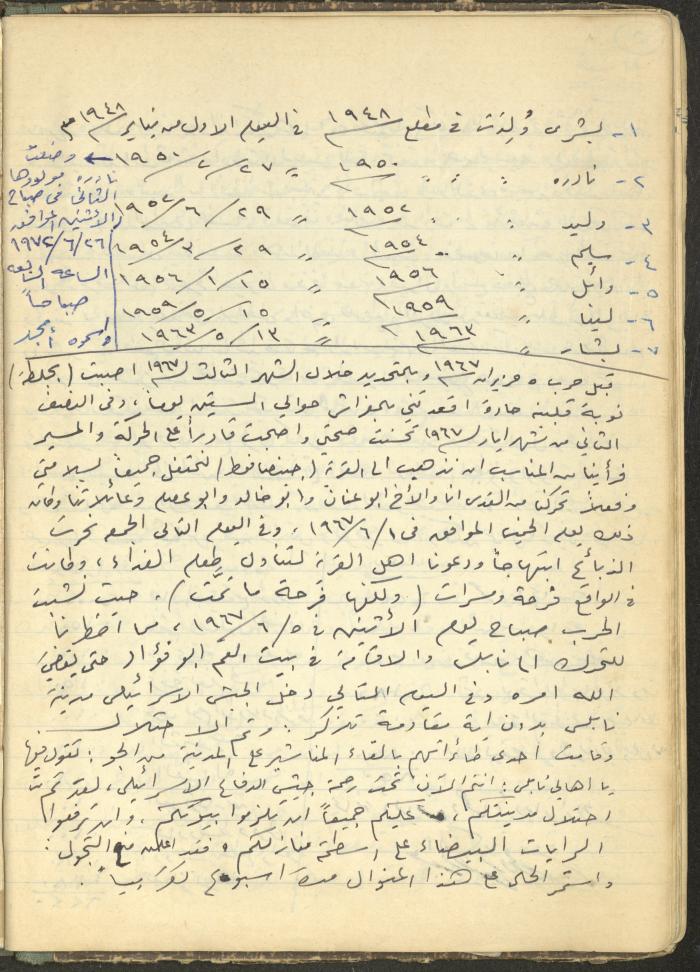 ١- بشرى وُلِدَت في مطلع ١٩٤٨ في اليوم الاول من يناير ١٩٤٨ م
٢- نادره " " " ١٩٥٠ " ٢٧ / ٢ / ١٩٥٠
٣- وليد " ١٩٥٢ " ٢٩ / ٦ / ١٩٥٢
٤- سليم " ١٩٥٤ " ٢٩ / ٣ / ١٩٥٤
٥- وائل " ١٩٥٦ " ١٥ / ١ / ١٩٥٦
٦- لينا " ١٩٥٩ " ١٥ / ٥ / ١٩٥٩
٧- بشار " ١٩٦٣ " ١٣ / ٥ / ١٩٦٣
← وضعت
نادره مولودها
الثاني في صباح
الاثنين الموافق
٢٦ / ٦ / ١٩٧٢
الساعه السابعه
صباحاً
واسموه أمجد
قبل حرب ٥ حزيران ١٩٦٧ وبالتحديد خلال الشهر الثالث ١٩٦٧ اصبت (بجلطة)
نوبة قلبية حادة اقعدتني بالفراش حوالي الستين يوماً، وفي النصف
الثاني من شهر ايار ١٩٦٧ تحسنت صحتي واصبحت قادراً على الحركة والمسير
فرأينا من المناسب ان نذهب الى القرية (جينصافوط) لنحتفل جميعاً بسلامتي
وفعلاً تحركنا من القدس انا والاخ ابو عنان وابو خالد وابو عصام وعائلاتنا وكان
ذلك يوم الخميس الموافق في ١ / ٦ / ١٩٦٧، وفي اليوم التالي الجمعه نحرت
الذبائح ابتهاجاً ودعونا اهل القرية لتناول طعام الغداء، وكانت
في الواقع فرحة ومسرات (ولكنها فرحة ما تمّت). حيث نشبت
الحرب صباح يوم الأثنين في ٥ / ٦ / ١٩٦٧، مما اضطرنا
للتحرك الى نابلس والاقامة في بيت العم ابو فؤاد حتى يقضيَ
الله امره وفي اليوم التالي دخل الجيش الاسرائيلي مدينة
نابلس بدون اية مقاومة تذكر. وتم الاحتلال
وقامت احدى طائراتهم بالقاء المناشير على المدينة من الجو: تقول فيها
يا اهالي نابلس: انتم الآن تحت رحمة جيش الدفاع الاسرائيلي، لقد تم
احتلال مدينتكم، عليكم جميعاً ان تلزموا بيوتكم، وان ترفعوا
الرايات البيضاء على اسطحة منازلكم، فقد اعلن منع التجول.
واستمر الحال على هذا المنوال مدة اسبوع تقريباً.